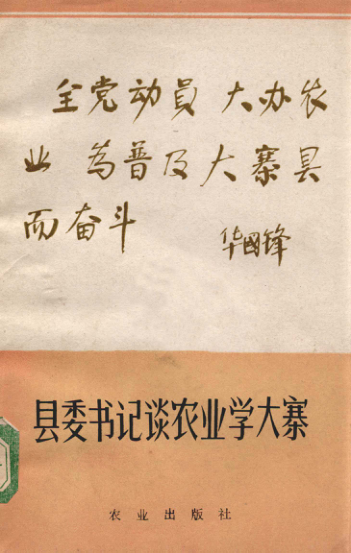 全党动員 大办农
业 为普及大寨县
而奋斗
华國锋
县委书记谈农业学大寨
农业出版社